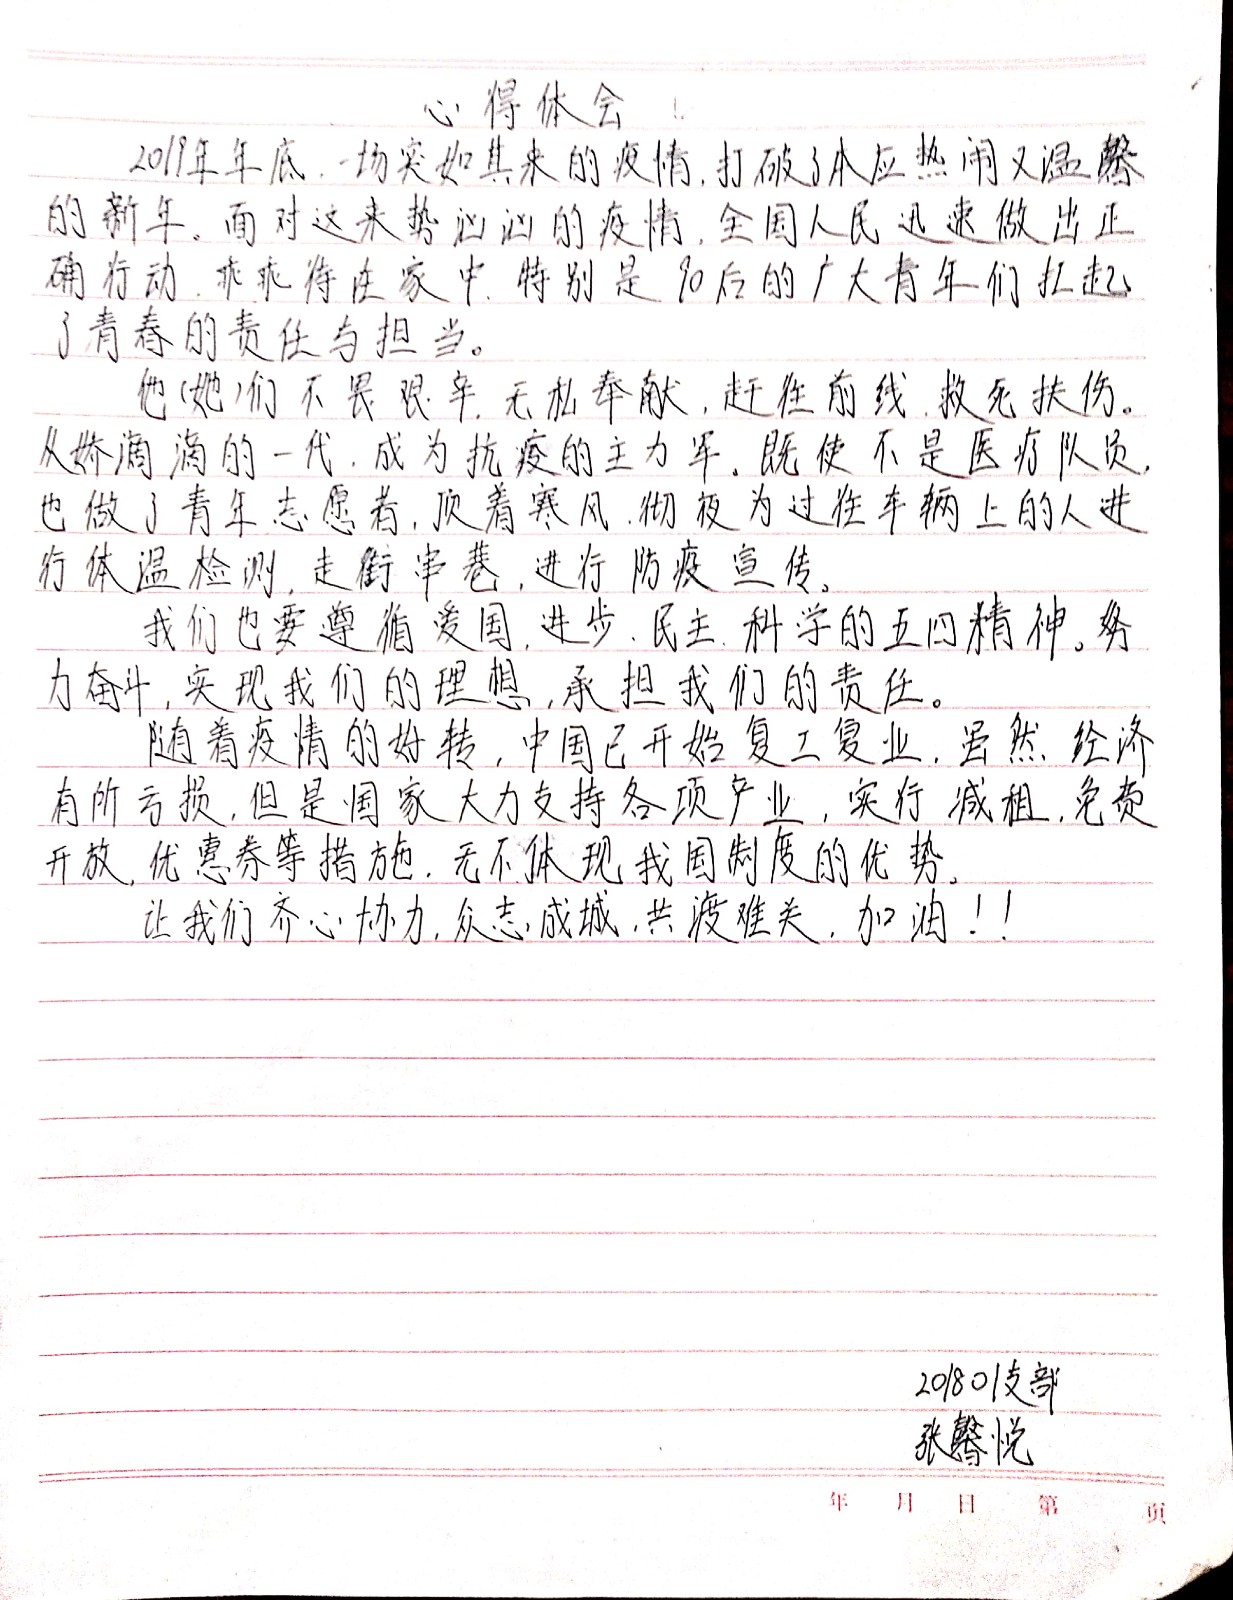 心得体会
2019年年底,一场突如其来的疫情,打破了本应热闹又温馨
的新年。面对这来势汹汹的疫情,全国人民迅速做出正
确行动,乖乖待在家中,特别是90后的广大青年们扛起
了青春的责任与担当。
他(她)们不畏艰辛,无私奉献,赶往前线,救死扶伤。
从娇滴滴的一代,成为抗疫的主力军。既使不是医疗队员,
也做了青年志愿者,顶着寒风,彻夜为过往车辆上的人进
行体温检测,走街串巷,进行防疫宣传。
我们也要遵循爱国,进步,民主,科学的五四精神。努
力奋斗,实现我们的理想,承担我们的责任。
随着疫情的好转,中国已开始复工复业,虽然经济
有所亏损,但是国家大力支持各项产业,实行减租,免费
开放,优惠券等措施,无不体现我国制度的优势。
让我们齐心协力,众志成城,共渡难关,加油!!
201801支部
张馨悦
年 月 日 第 页